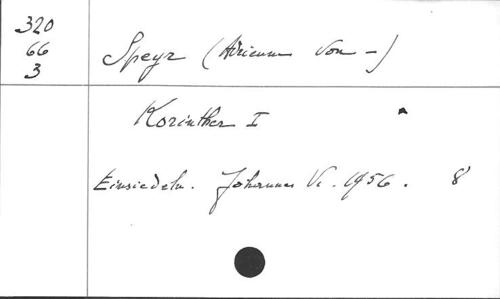 320
66
3
Speyr (Adrienne von -)
Korinther I
Einsiedeln. Johannes V. 1956. 8°